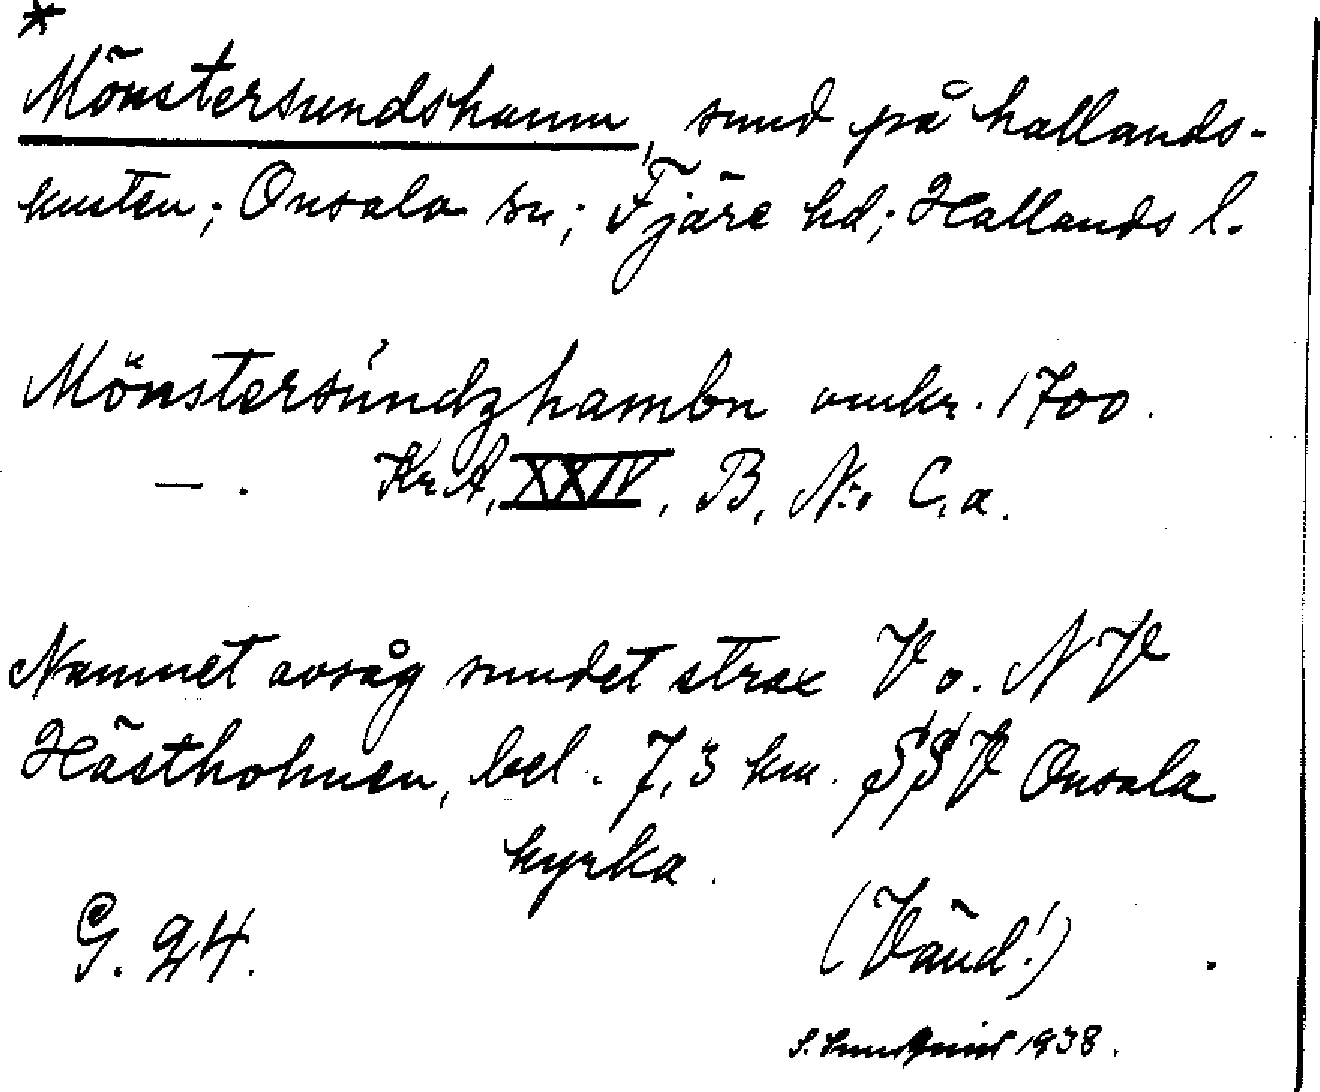 *
Mönstersundshamn, sund på hallands-
kusten; Onsala sn; Fjäre hd; Hallands l.
Mönstersúndzhambn omkr. 1700.
— . Kr.A, XXIV, B, N:o C, a.
Namnet avsåg sundet strax V o. NV
Hästholmen, bel. 7,3 km. SSV Onsala
kyrka.
G. 24. (Vänd!)
S. 1938.